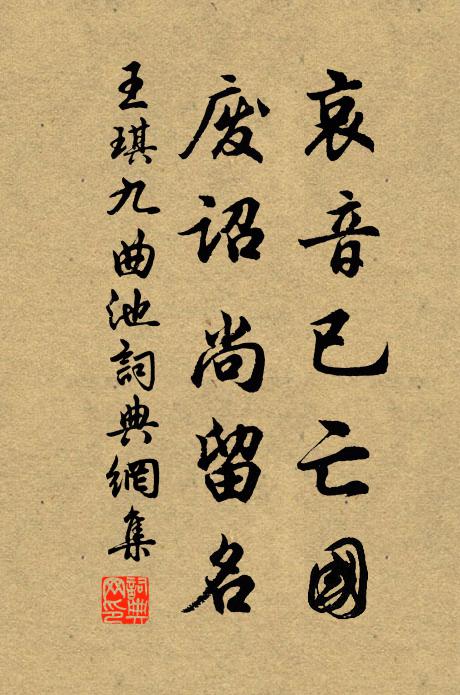 哀音已亡國
废诏尚留名
王琪九曲池詞典網集
詞典网印